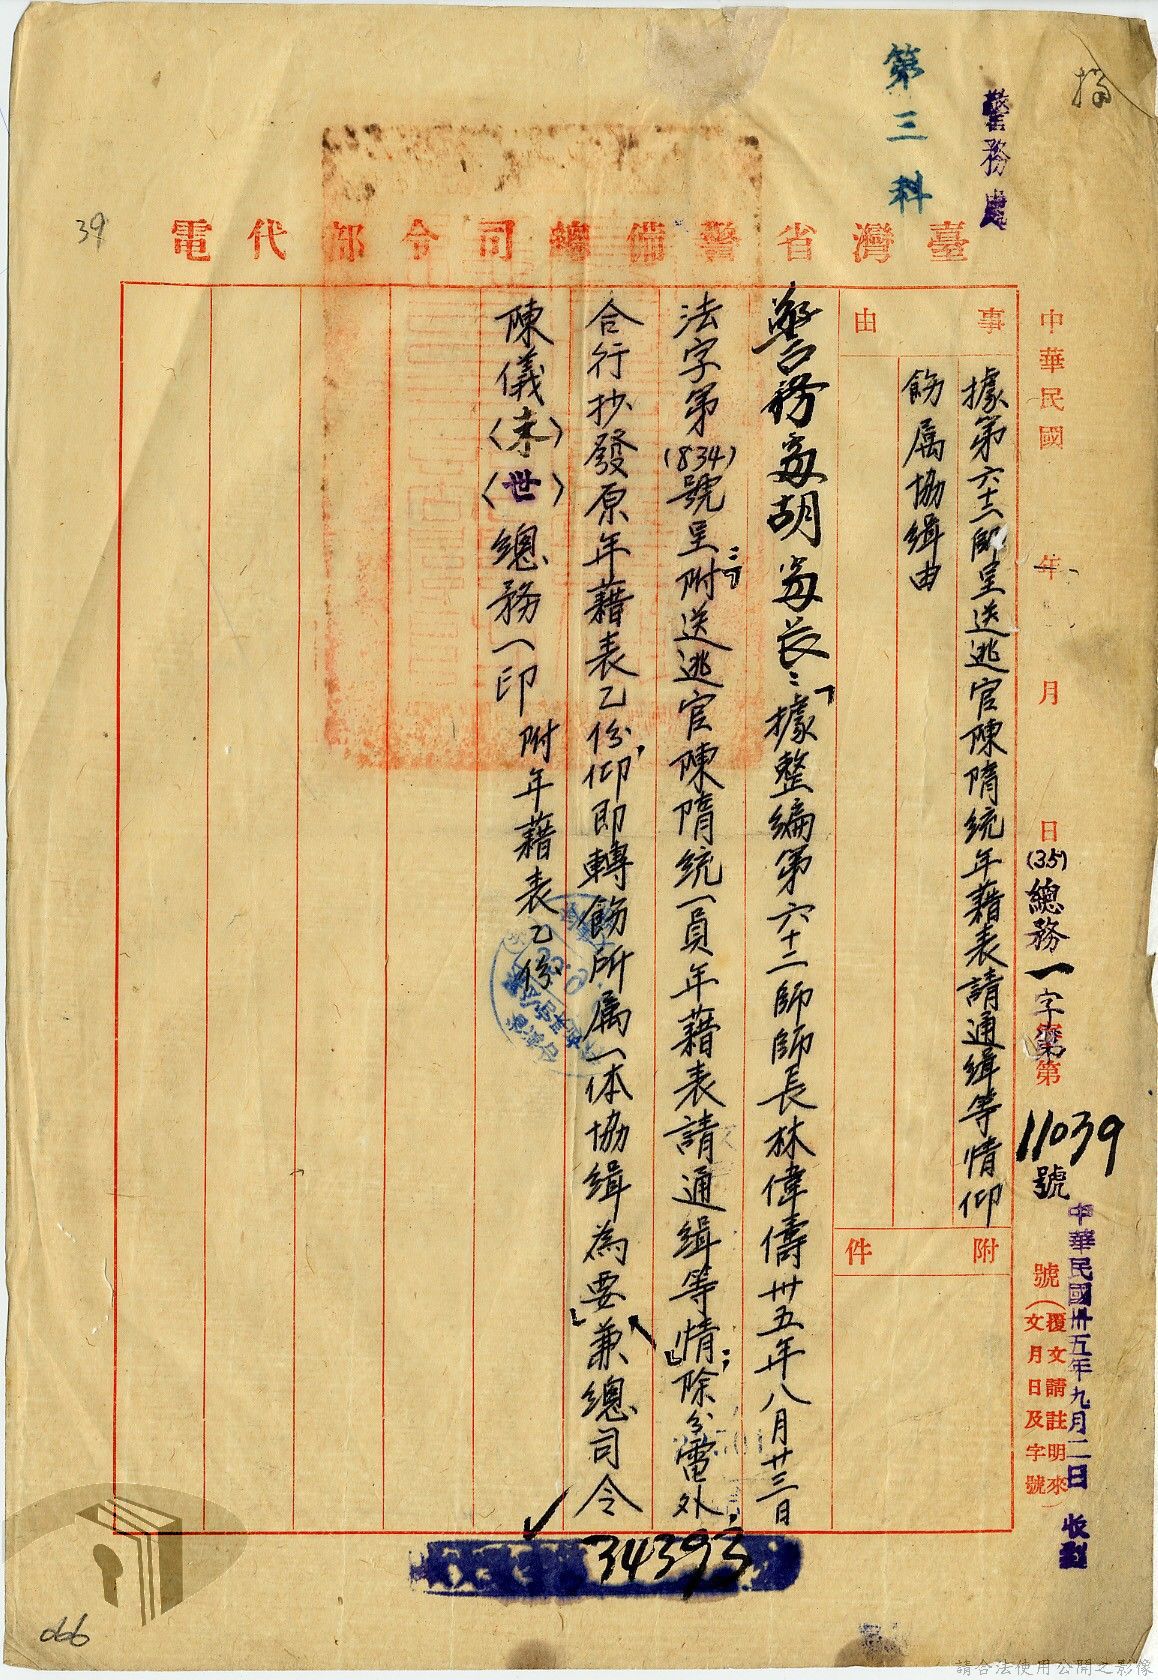 摘
警務處
第三科
臺灣省警備總司令部代電
39
中華民國 年 月 日(35)總務一字第第11039號
號(覆文請註明來文月日及字號)
中華民國卅五年九月二日 收到
事由
據第六十二師呈送逃官陳隋統年藉表請通緝等情仰
飭属協缉由
附件
警務處胡處长:「據整编第六十二師師長林偉儔卅五年八月廿三日
法字第(834)號呈:「附送逃官陳隋統一員年藉表請通缉等情」;除分電外,
合行抄發原年藉表乙份,仰即轉飭所属一体協缉為要」兼總司令
陳儀(未)(世)總務一印 附年藉表乙份
34393
066
請合法使用公開之影像